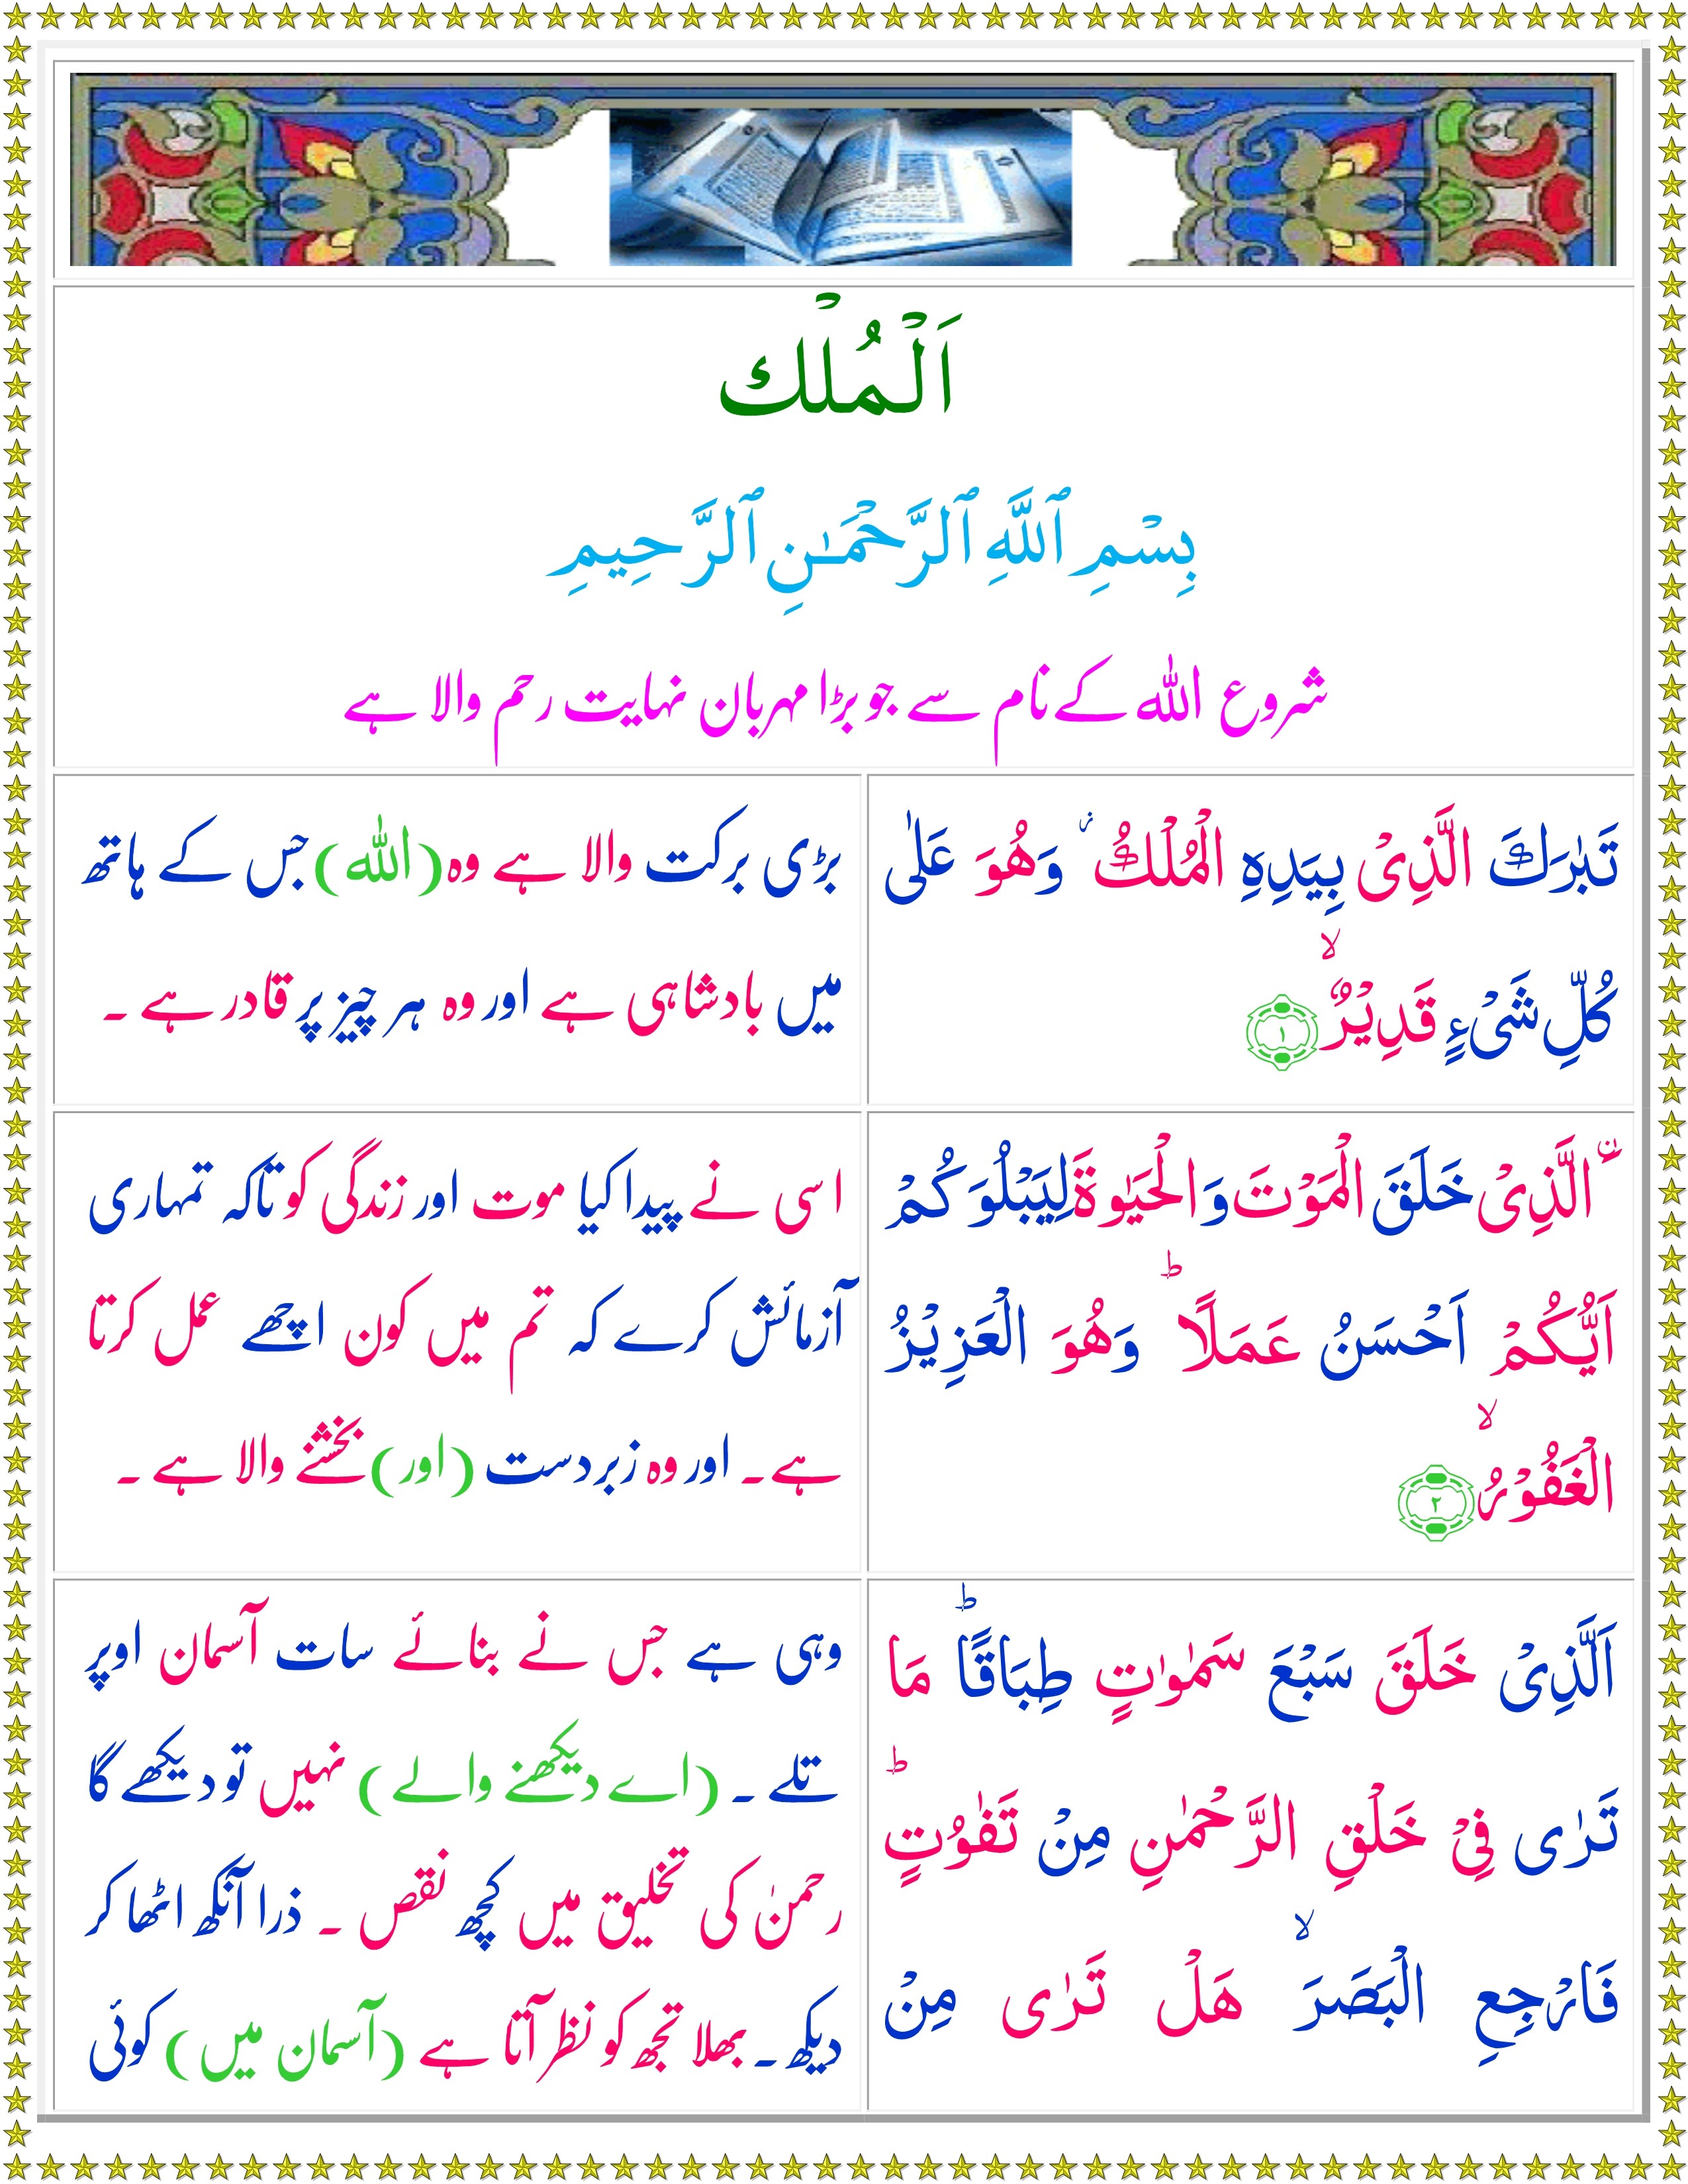 اَلْمُلْك
بِسْمِ ٱللَّهِ ٱلرَّحْمَـٰنِ ٱلرَّحِيمِ
شروع اللہ کے نام سے جو بڑا مہربان نہایت رحم والا ہے
تَبٰرَكَ الَّذِیْ بِیَدِهِ الْمُلْكُ ؗ وَهُوَ عَلٰی
كُلِّ شَیْءٍ قَدِیْرُۙ ﴿۱﴾
بڑی برکت والا ہے وہ (اللہ) جس کے ہاتھ
میں بادشاہی ہے اور وہ ہر چیز پر قادر ہے ۔
ن۪ الَّذِیْ خَلَقَ الْمَوْتَ وَالْحَیٰوةَ لِیَبْلُوَكُمْ
اَیُّكُمْ اَحْسَنُ عَمَلًا ؕ وَهُوَ الْعَزِیْزُ
الْغَفُوْرُۙ ﴿۲﴾
اسی نے پیدا کیا موت اور زندگی کو تاکہ تمہاری
آزمائش کرے کہ تم میں کون اچھے عمل کرتا
ہے ۔ اور وہ زبردست (اور) بخشنے والا ہے ۔
اَلَّذِیْ خَلَقَ سَبْعَ سَمٰوٰتٍ طِبَاقًا ؕ مَا
تَرٰی فِیْ خَلْقِ الرَّحْمٰنِ مِنْ تَفٰوُتٍ ؕ
فَارْجِعِ الْبَصَرَ ۙ هَلْ تَرٰی مِنْ
وہی ہے جس نے بنائے سات آسمان اوپر
تلے ۔ (اے دیکھنے والے) نہیں تو دیکھے گا
رحمنٰ کی تخلیق میں کچھ نقص ۔ ذرا آنکھ اٹھا کر
دیکھ ۔ بھلا تجھ کو نظر آتا ہے (آسمان میں) کوئی